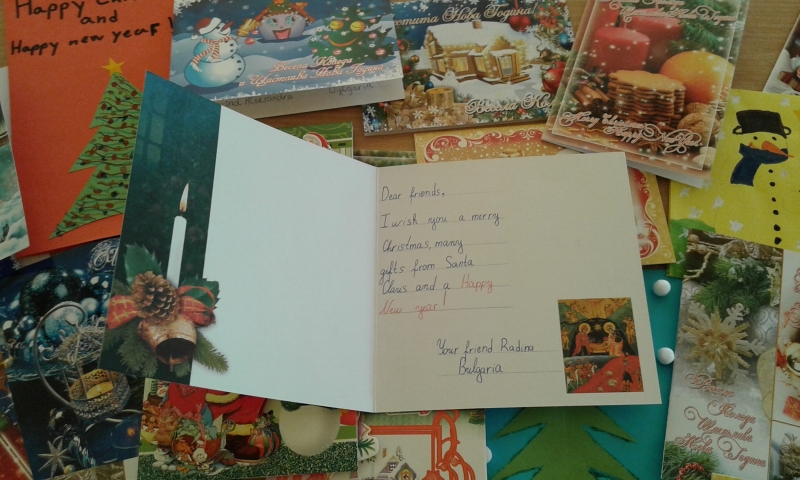 Happy
and
Happy new year!
Весела Коледа
и Щастлива Нова Година
Нова Година!
Весела
Dear friends,
I wish you a merry
Christmas, many
gifts from Santa
Claus and a Happy
New year!
Your friend Radina
Bulgaria
Весела
Коледа
Щастлива
Нова Година